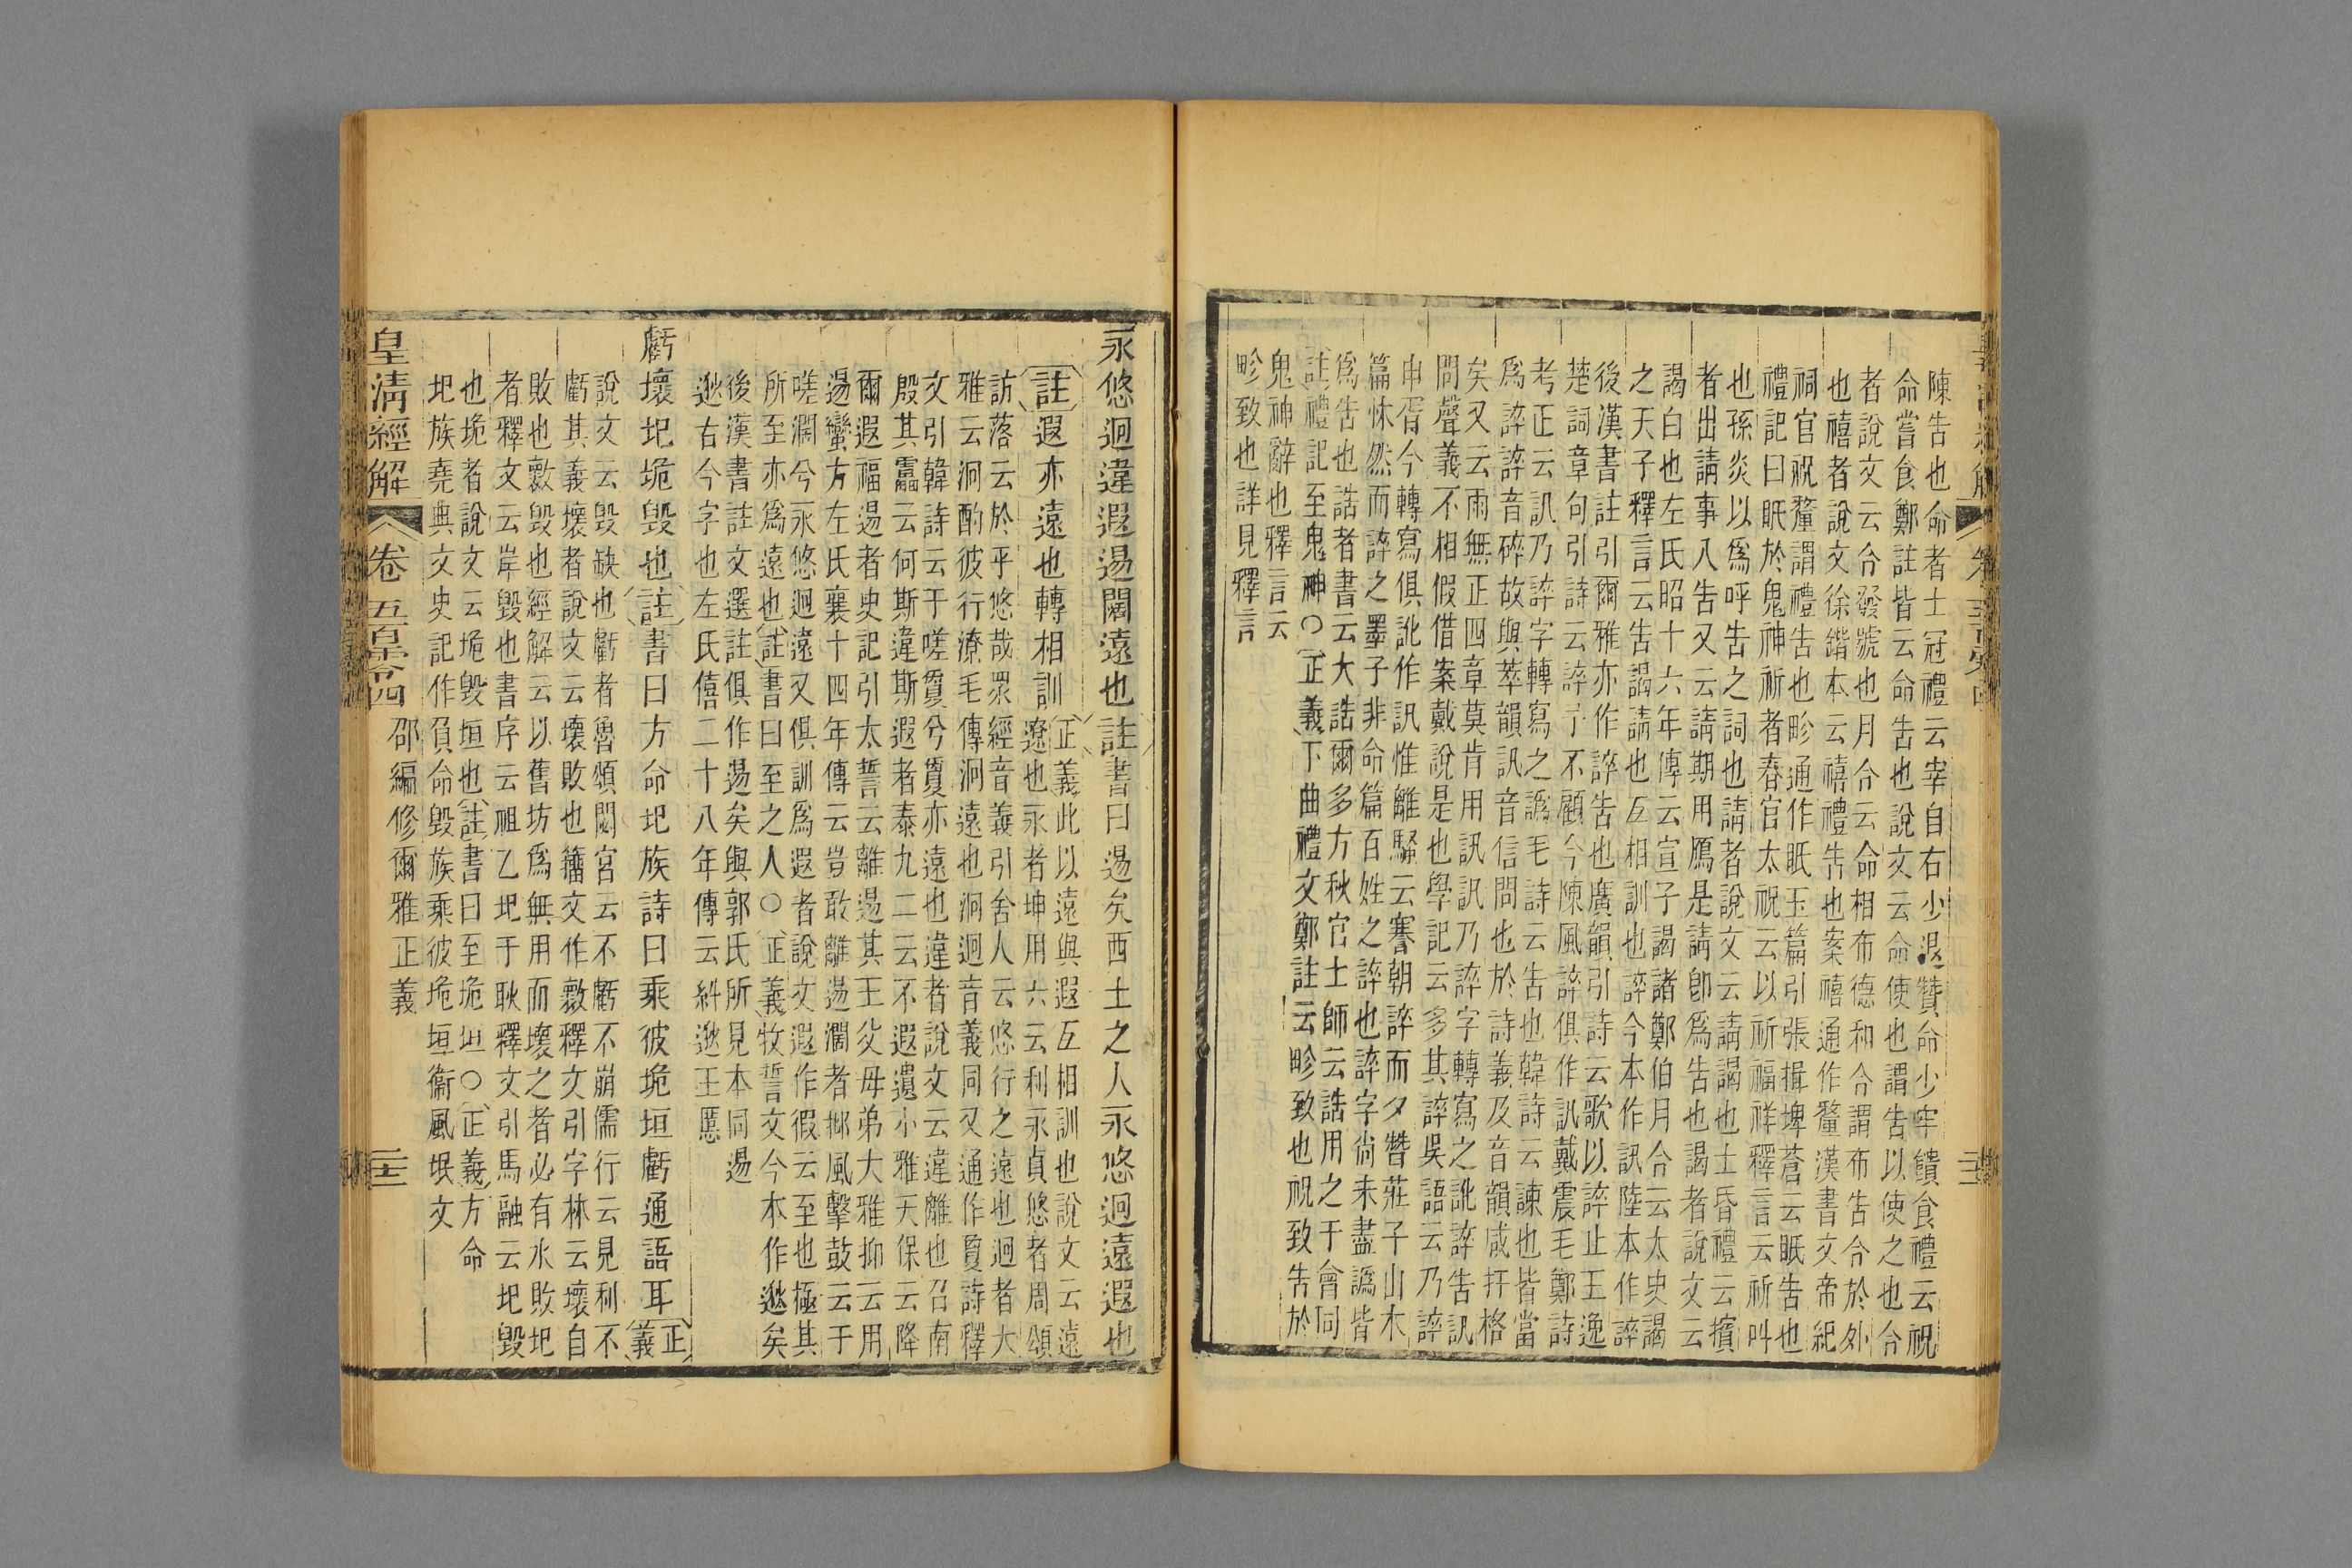 陳告也命者士冠禮云宰自右少退贊命少牢饋食禮云祝
命嘗食鄭註皆云命告也說文云命使也謂告以使之也令
者說文云令發號也月令云命相布德和令謂布告令於外
也禧者說文徐鍇本云禧禮告也案禧通作釐漢書文帝紀
祠官祝釐謂禮告也畛通作眂玉篇引張揖埤蒼云眂告也
禮記曰眂於鬼神祈者春官太祝云以祈福祥釋言云祈叫
也孫炎以為呼告之詞也請者說文云請謁也士昏禮云擯
者出請事入告又云請期用鴈是請卽為告也謁者說文云
謁白也左氏昭十六年傳云宣子謁諸鄭伯月令云太史謁
之天子釋言云告謁請也互相訓也誶今本作訊陸本作誶
後漢書註引爾雅亦作誶告也廣韻引詩云歌以誶止王逸
楚詞章句引詩云誶予不顧今陳風誶俱作訊戴震毛鄭詩
考正云訊乃誶字轉寫之譌毛詩云告也韓詩云諫也皆當
為誶誶音碎故與萃韻訊音信問也於詩義及音韻咸扞格
矣又云雨無正四章莫肯用訊訊乃誶字轉寫之訛誶告訊
問聲義不相假借案戴說是也學記云多其誶吳語云乃誶
申胥今轉寫俱訛作訊惟離騷云謇朝誶而夕替莊子山木
篇怵然而誶之墨子非命篇百姓之誶也誶字尚未盡譌皆
為告也誥者書云大誥爾多方秋官士師云誥用之于會同
註禮記至鬼神○正義下曲禮文鄭註云畛致也祝致告於
鬼神辭也釋言云
畛致也詳見釋言
永悠迥違遐逷闊遠也註書曰逷矣西土之人永悠迥遠遐也
註遐亦遠也轉相訓正義此以遠與遐互相訓也說文云遠
遼也永者坤用六云利永貞悠者周頌
訪落云於乎悠哉眾經音義引舍人云悠行之遠也迥者大
雅云泂酌彼行潦毛傳泂遠也泂迥音義同又通作敻詩釋
文引韓詩云于嗟敻兮敻亦遠也違者說文云違離也召南
殷其靁云何斯違斯遐者泰九二云不遐遺小雅天保云降
爾遐福逷者史記引太誓云離逷其王父母弟大雅抑云用
逷蠻方左氏襄十四年傳云豈敢離逷濶者邶風擊鼓云于
嗟濶兮永悠迥遠又俱訓為遐者說文遐作徦云至也極其
所至亦為遠也註書曰至之人○正義牧誓文今本作逖矣
後漢書註文選註俱作逷矣與郭氏所見本同逷
逖古今字也左氏僖二十八年傳云糾逖王慝
虧壞圮垝毀也註書曰方命圮族詩曰乘彼垝垣虧通語耳正義
說文云毀缺也虧者魯頌閟宮云不虧不崩儒行云見利不
虧其義壞者說文云壞敗也籀文作𣀩釋文引字林云壞自
敗也𣀩毀也經解云以舊坊為無用而壞之者必有水敗圮
者釋文云岸毀也書序云祖乙圮于耿釋文引馬融云圮毀
也垝者說文云垝毀垣也註書曰至垝垣○正義方命
圮族堯典文史記作負命毀族乘彼垝垣衞風氓文
皇清經解　卷五百零四　邵編修爾雅正義　二十三